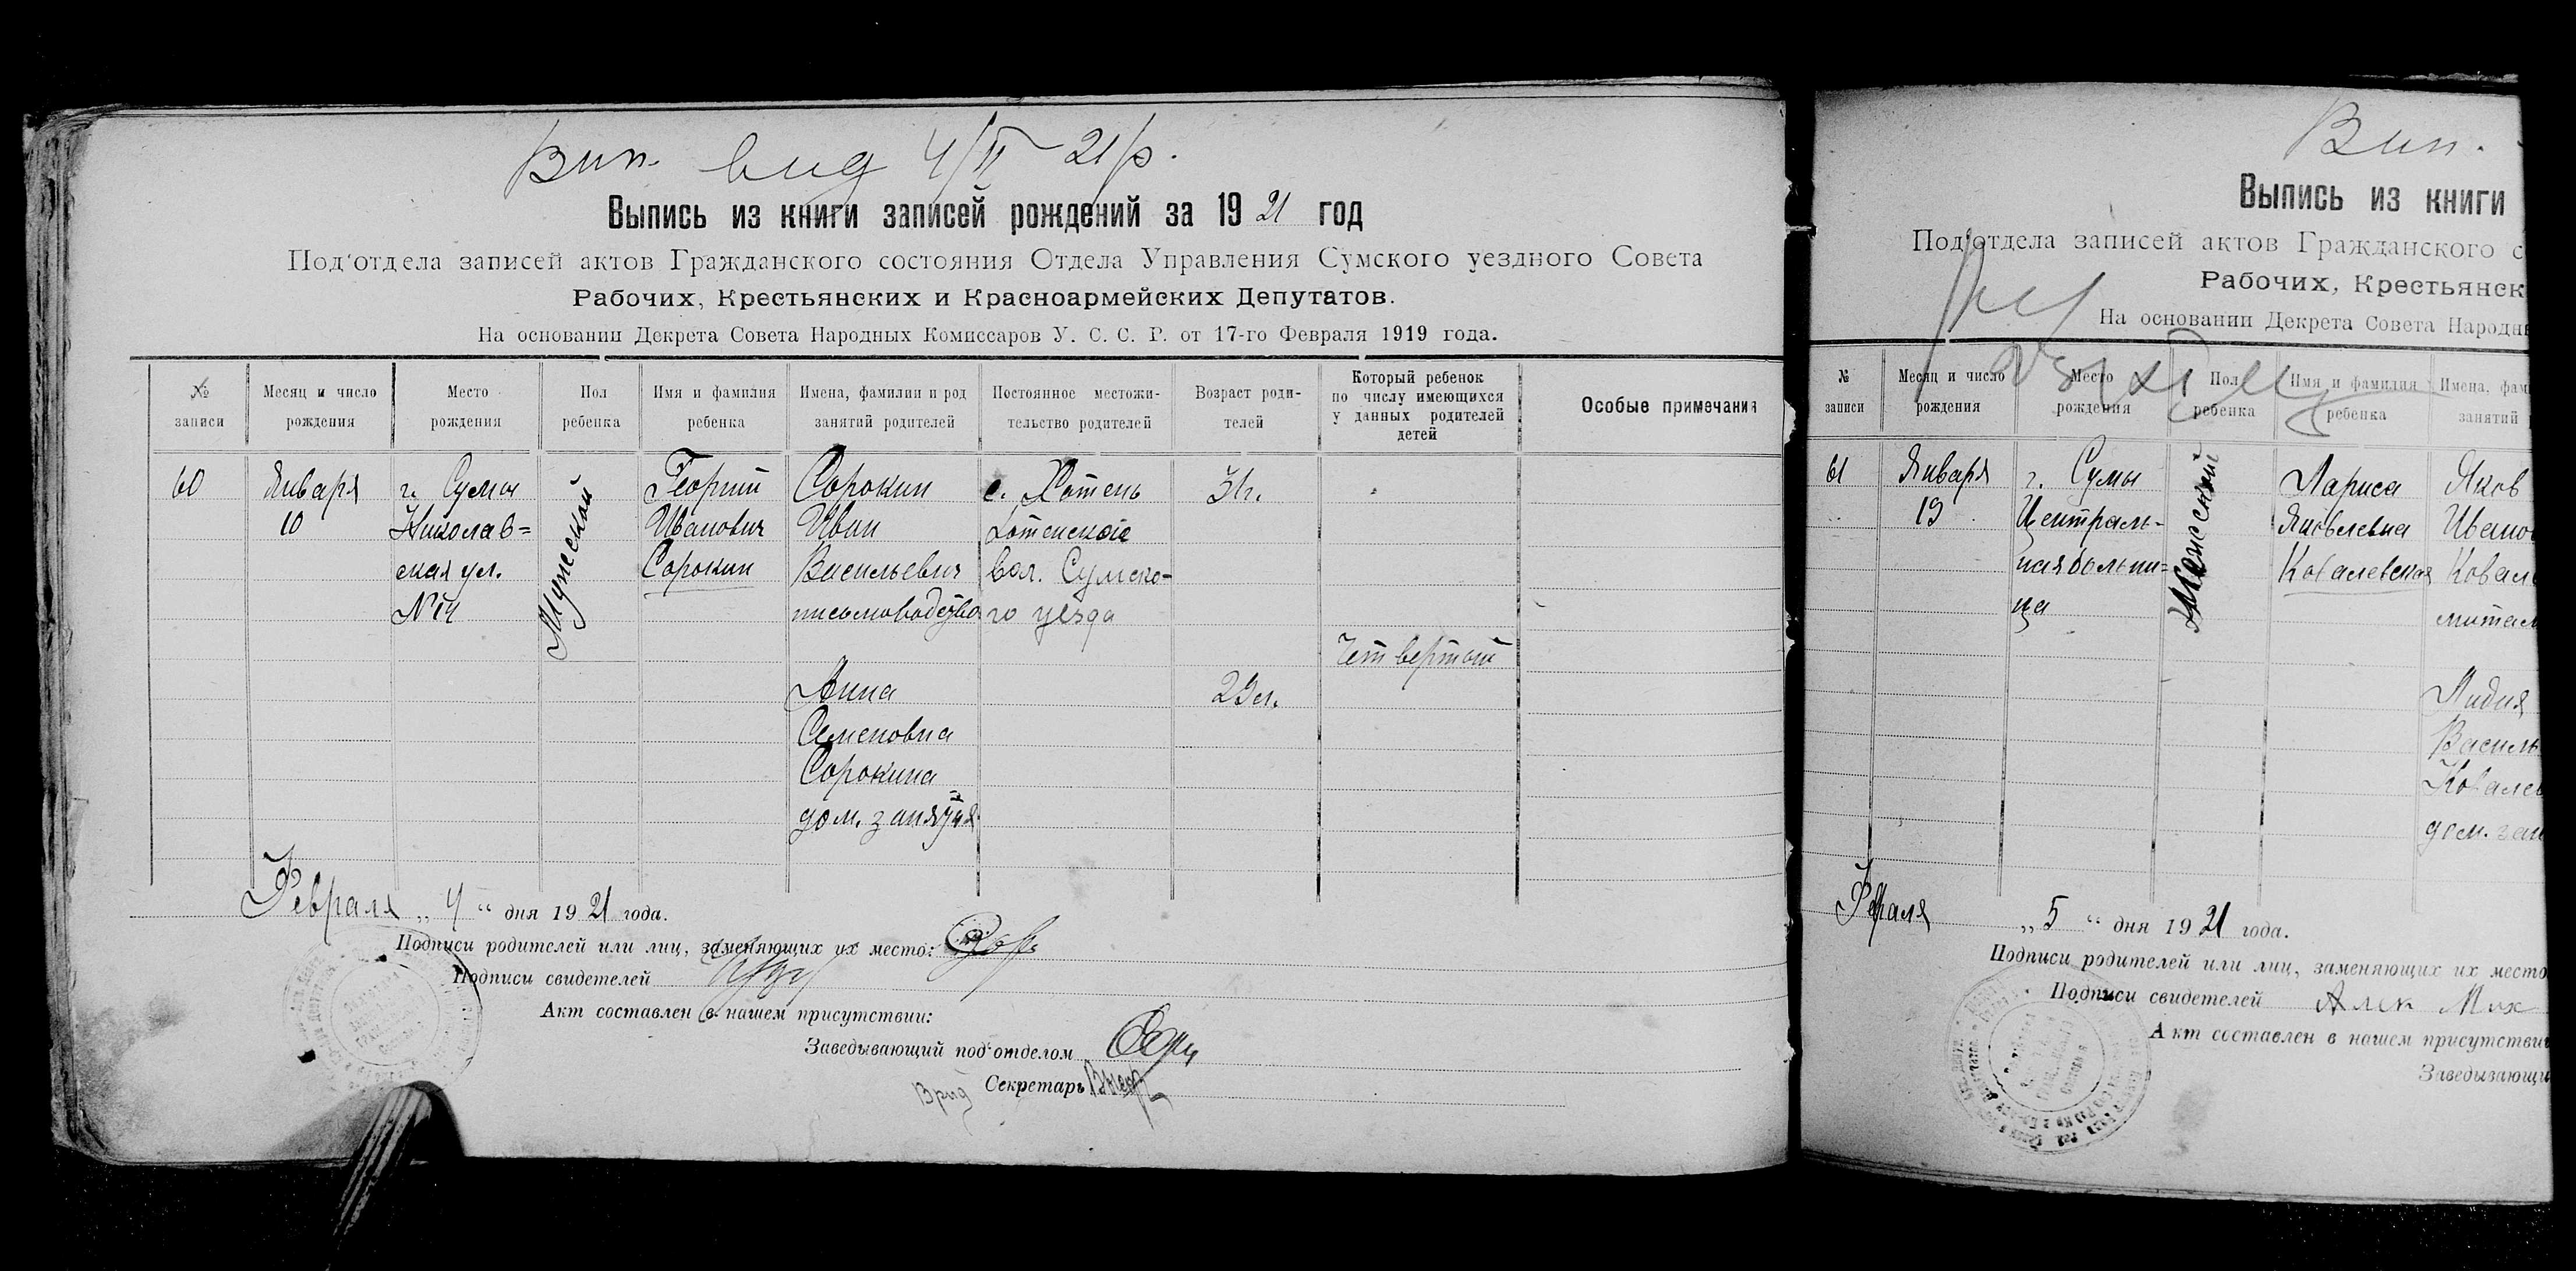 Вип. вид 4/II 21 р.
Выпись из книги записей рождений за 1921 год
Под'отдела записей актов Гражданского состояния Отдела Управления Сумского уездного Совета
Рабочих, Крестьянских и Красноармейских Депутатов.
На основании Декрета Совета Народных Комиссаров У. С. С. Р. от 17-го Февраля 1919 года.
№ записи
Месяц и число рождения
Место рождения
Пол ребенка
Имя и фамилия ребенка
Имена, фамилии и род занятий родителей
Постоянное местожи-
тельство родителей
Возраст роди-
телей
Который ребенок
по числу имеющихся
у данных родителей
детей
Особые примечания
60
Января
10
г. Сумы
Николаев=
ская ул.
№14
Мужеской
Георгий
Иванович
Сорокин
Сорокин
Иван
Васильевич
письмоводство
Анна
Семеновна
Сорокина
дом. занятия
с. Хотень
Хотенской
вол. Сумско-
го уезда
31 г.
29 л.
Четвертый
Февраля „ 4 “ дня 1921 года.
Подписи родителей или лиц, заменяющих их место:
Подписи свидетелей
Акт составлен в нашем присутствии:
Заведывающий под'отделом
Врид Секретарь
Вип.
Выпись из книги
Под'отдела записей актов Гражданского с
Рабочих, Крестьянск
На основании Декрета Совета Народн
№ записи
Месяц и число рождения
Место рождения
Пол ребенка
Имя и фамилия ребенка
Имена, фам
занятий
61
Января
19
г. Сумы
Централь-
ная больни=
ца
Женский
Лариса
Яковлевна
Ковалевская
Яков
Ивано
Ковал
Лидия
Василь
Ковалев
дом. зан
Февраля „ 5 “ дня 1921 года.
Подписи родителей или лиц, заменяющих их место
Подписи свидетелей Алек Мих
Акт составлен в нашем присутстви
Заведывающи